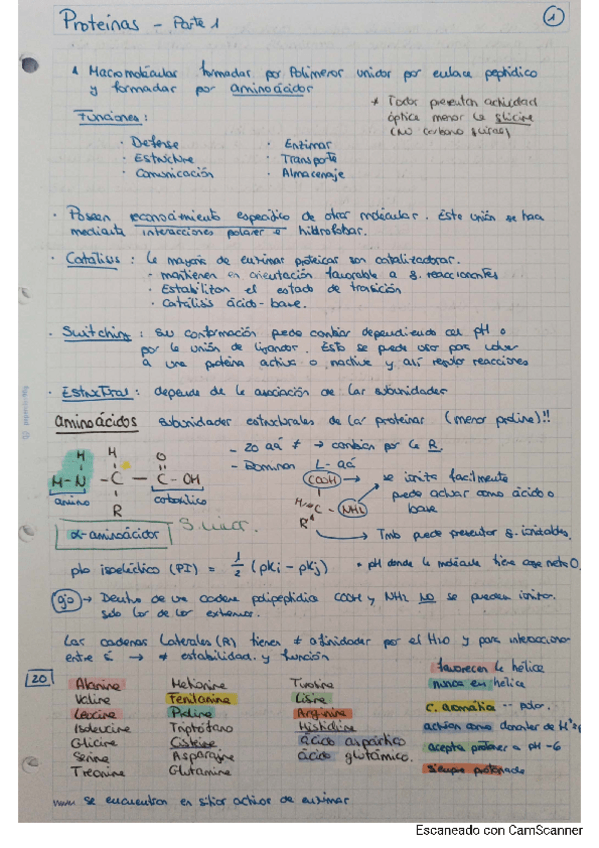 Proteínas - Parte 1
1
1 Macromoléculas formadas por Polímeros unidos por enlace peptídico
y formadas por aminoácidos
* Todos presentan actividad
óptica menos la glicina
(no carbono quiral)
Funciones:
· Defensa · Enzimas
· Estructura · Transporte
· Comunicación · Almacenaje
· Poseen reconocimiento específico de otras moléculas. Esta unión se hace
mediante interacciones polares e hidrófobas.
· Catálisis: la mayoría de enzimas proteicas son catalizadoras.
- mantienen en orientación favorable a g. reaccionantes
- Estabilizan el estado de transición
- Catálisis ácido-base.
· Switching: su conformación puede cambiar dependiendo del pH o
por la unión de ligandos. Esto se puede usar para volver
a una proteína activa o inactiva y así regular reacciones
· Estructural: depende de la asociación de las subunidades
aminoácidos subunidades estructurales de las proteínas (menos prolina)!!
- 20 aá ≠ → cambian por la R.
- Dominan L-aá
H H O
H-N-C-C-OH
R
amino carboxílico
α-aminoácidos
COOH → se ioniza facilmente
puede actuar como ácido o
base
H-C-NH2
R
→ Tmb puede presentar g. ionizables.
pto isoeléctrico (PI) = 1/2 (pKi - pKj) * pH donde la molécula tiene carga neta 0.
gjo → Dentro de una cadena polipeptídica COOH y NH2 NO se pueden ionizar.
solo los de los extremos.
Las cadenas laterales (R) tienen ≠ afinidades por el H2O y para interaccionar
entre sí → ≠ estabilidad y función
20
Alanina Metionina Tirosina favorecen la hélice
Valina Fenilanina Lisina nunca en hélice
Leucina Prolina Arginina c. aromática -- polar.
Isoleucina Triptófano Histidina actúan como donantes de H+
Glicina Cisteína ácido aspártico acepta protones a pH~6
Serina Asparagina ácido glutámico.
Treonina Glutamina siempre protonada
se encuentran en sitios activos de enzimas
Escaneado con CamScanner